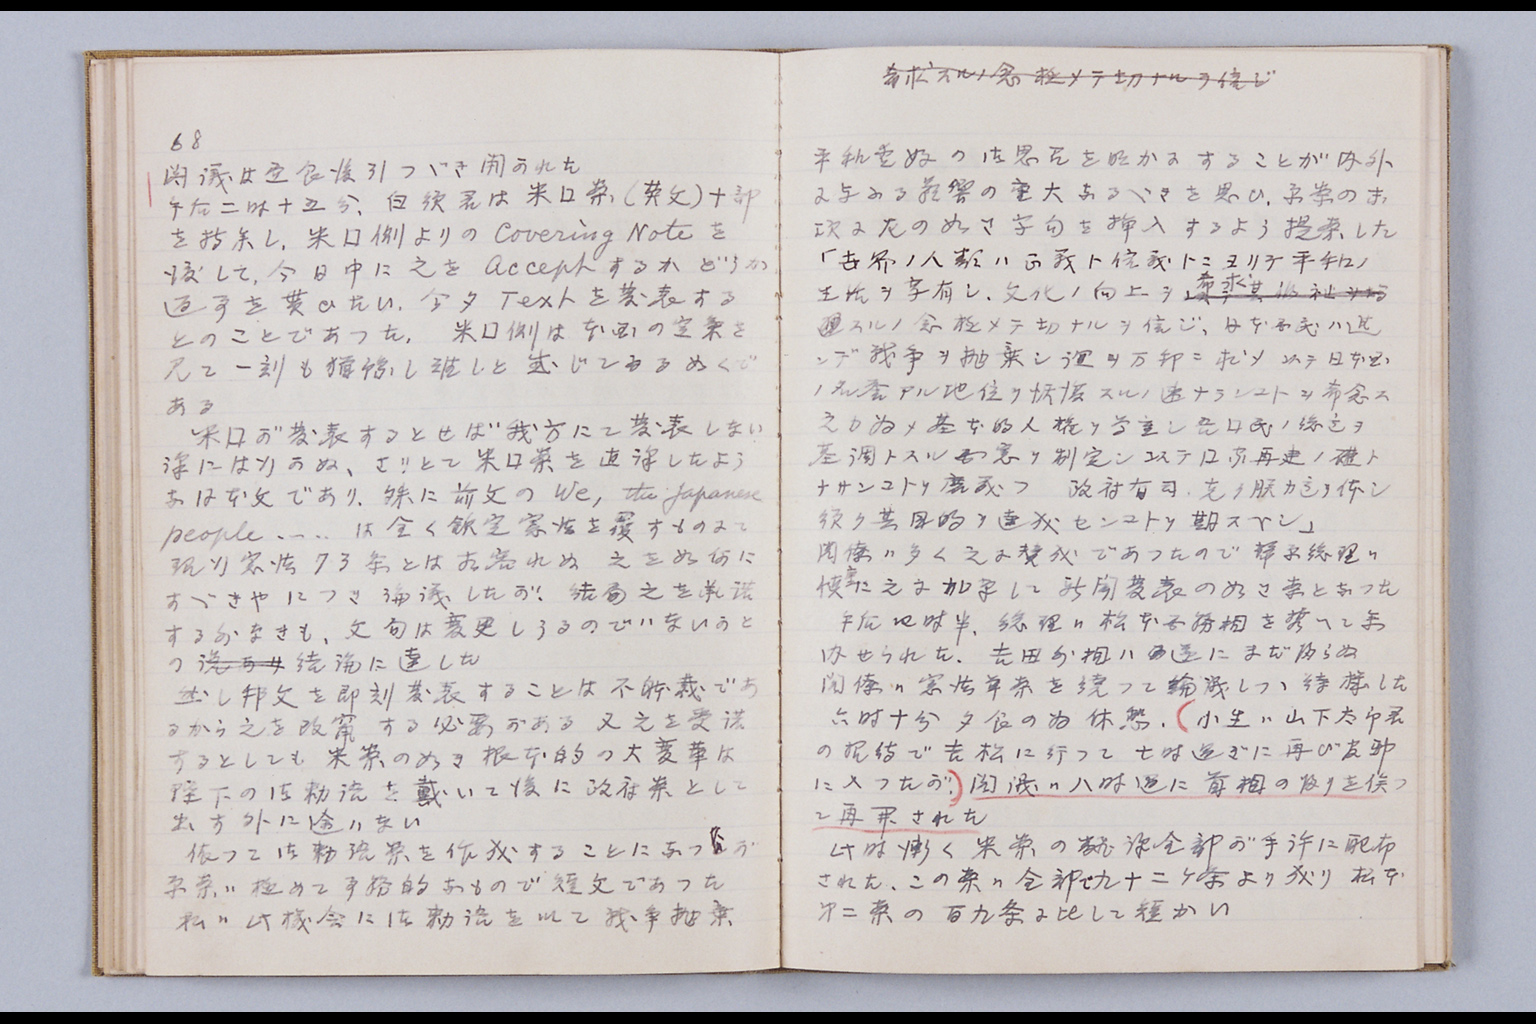 68
閣議は昼食後引つづき開かれた
午后二時十五分、白須君は米口案(英文)十部
を持参し、米口側よりの Covering Note を
渡して、今日中に之を Accept するか どうか
返事を貰ひたい、今夕 Text を発表する
とのことであつた。 米口側は本日の定案を
見て一刻も猶予し難しと感じてゐるめくで
ある
米口が発表するとせば我方にて発表しない
訳には行かぬ、さりとて米口案を直訳したよう
なは本文であり、殊に前文の We, the Japanese
people ..... は全く欽定憲法を覆すものにて
現行憲法73条とは相容れぬ 之を如何に
すべきやにつき論議したが、結局之を承諾
するかなきも、文句は変更しうるのではないかと
の 結論に達した
然し邦文を即刻発表することは不体裁であ
るから之を改竄する必要がある 又之を受諾
するとしても米案のめき根本的の大変革は
陛下の御勅語を戴いて後に政府案として
出す外に途はない
依つて御勅語案を作成することになつたが
原案は極めて事務的なもので短文であつた
私は此機会に御勅語を以て戦争抛棄
希求スルノ念極メテ切ナルヲ信ジ
平和愛好の御思召を明かにすることが内外
に与ふる影響の重大なるべきを思ひ、原案のお
次に左のめき字句を挿入するよう提案した
「世界ノ人類ハ正義ト信義トニヨリテ平和ノ
生活ヲ享有シ、文化ノ向上ヲ希求
スルノ念極メテ切ナルヲ信ジ、日本国民ハ進
ンデ戦争ヲ抛棄シ誼ヲ万邦ニ求メ 以テ日本国
ノ名誉アル地位ヲ恢復スルノ途ナランコトヲ希念ス
之カ為メ基本的人権ヲ尊重シ吾口民ノ総意ヲ
基調トスル憲ヲ制定シ以テ口家再建ノ礎ト
ナサンコトヲ庶幾フ 政府有司、克ク朕カ意ヲ体シ
須ク其目的ヲ達成センコトヲ期スベシ」
閣僚は多く之に賛成であつたので幣原総理は
慎重に之に加筆して新聞発表のめき案となつた
午后四時半、総理は松本国務相を携へて参
内せられた、吉田外相は 還にまだ帰らぬ
閣僚は憲法草案を繞つて論議しつゝ待機した
六時十分夕食の為休憩、(小生は山下太郎君
の招待で吉松に行つて七時過ぎに再び官邸
に入つたが)閣議は八時過に首相の皈りを俟つ
て再開された
此時漸く米案の翻訳全部が手許に配布
された、この案は全部で九十二ケ条より成り 松本
第二案の百九条に比して短かい